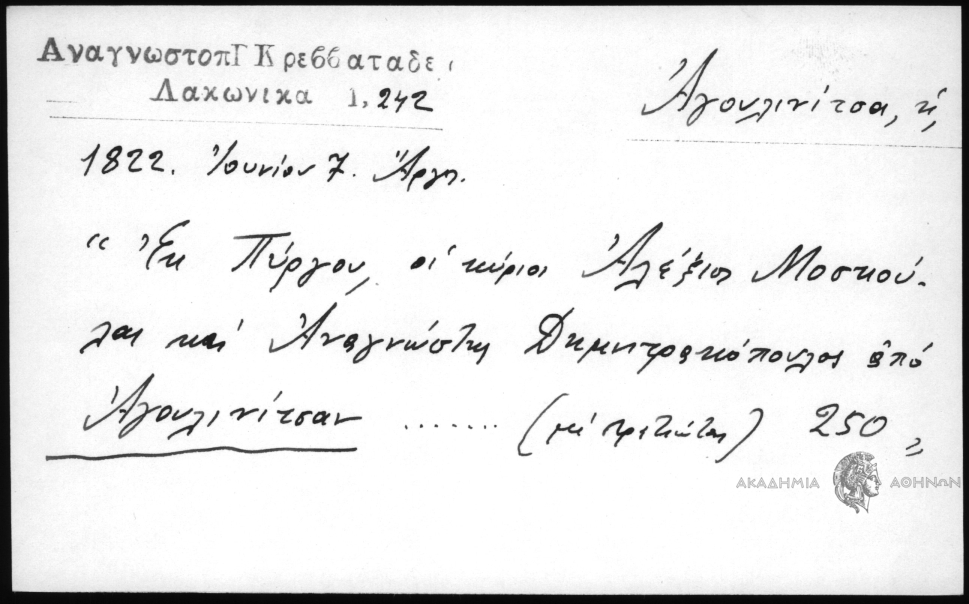 ΑναγνωστοπΓ Κρεββαταδε
Λακωνικα 1, 242
Ἀγουλινίτσα, ἡ,
1822. Ἰουνίου 7. Ἄργος.
“ Ἐκ Πύργου, οἱ κύριοι Ἀλέξιος Μοσκού-
λας καί Ἀναγνώστης Δημητρακόπουλος ἀπό
Ἀγουλινίτσαν ....... ( ) 250 „
ΑΚΑΔΗΜΙΑ ΑΘΗΝΩΝ